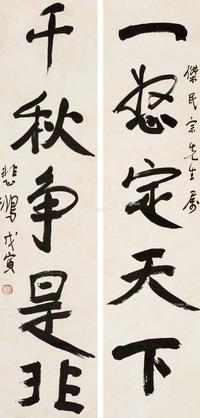 傑民宗先生属
一怒定天下
千秋争是非
悲鴻戊寅